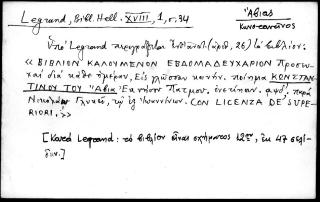 Legrand, Bibl. Hell. XVIII, 1, σ. 34
Ἀβιᾶς
Κωνσταντῖνος
Ὑπὸ Legrand περιγράφεται ἐνταῦθα (ἀριθ. 26) τὸ βιβλίον:
« ΒΙΒΛΙΟΝ ΚΑΛΟΥΜΕΝΟΝ ΕΒΔΟΜΑΔΕΥΧΑΡΙΟΝ Προσευ-
χαὶ διὰ κάθε ἡμέραν, Εἰς γλῶσσαν κοινήν. ποίημα ΚΩΝΣΤΑΝ
ΤΙΝΟΥ ΤΟΥ Ἀβιᾶ Ἐκ νήσου Πάτμου. ἐνετίησιν. αψδ΄. παρὰ
Νικολάῳ Γλυκεῖ, τῷ ἐξ Ἰωαννίνων. CON LICENZA DE' SUPE-
RIORI. »
[Κατὰ Legrand: τὸ βιβλίον εἶναι σχήματος 12ου, ἐκ 47 σελί-
δων.]